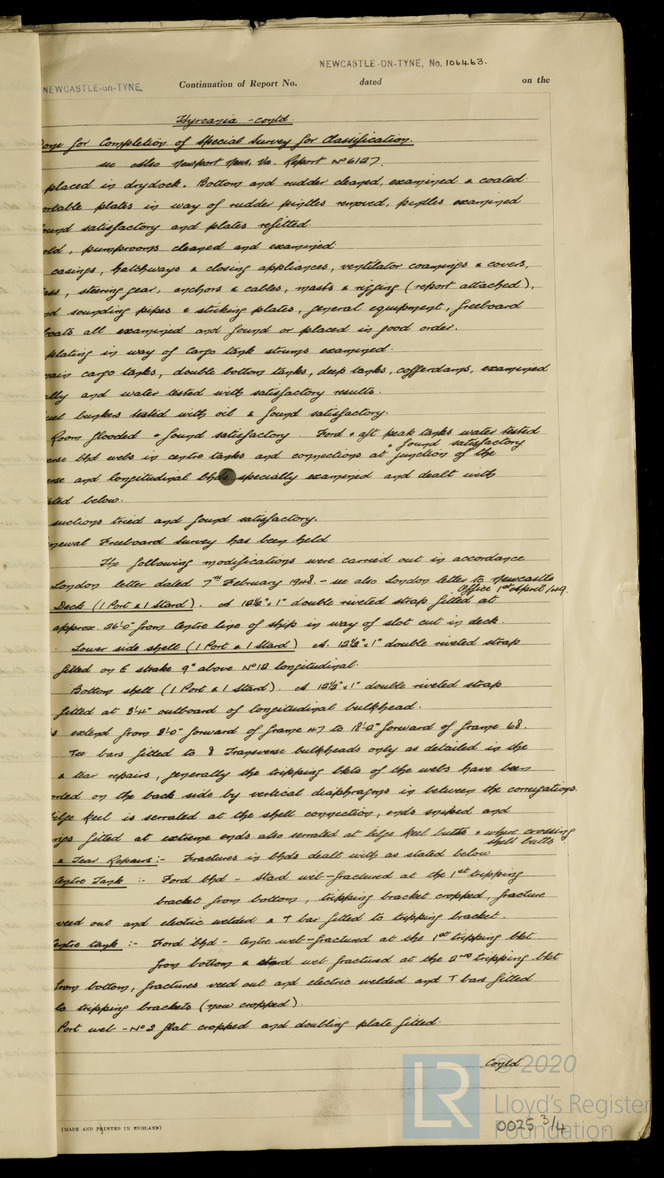 NEWCASTLE-ON-TYNE, No. 106463.
NEWCASTLE-ON-TYNE. Continuation of Report No. dated on the
Hyrcania - contd
done for Completion of Special Survey for Classification.
see also Newport News. Va. Report No 6127.
placed in drydock. Bottom and rudder cleaned, examined & coated
ortable plates in way of rudder pintles removed, pintles examined
ound satisfactory and plates refitted
old, pumprooms cleaned and examined
casings, hatchways & closing appliances, ventilator coamings & covers,
ass, steering gear, anchors & cables, masts & rigging (report attached),
nd sounding pipes & striking plates, general equipment, freeboard
boats all examined and found or placed in good order.
plating in way of cargo tank strums examined.
main cargo tanks, double bottom tanks, deep tanks, cofferdams, examined
ally and water tested with satisfactory results.
uel bunkers tested with oil & found satisfactory.
Room flooded & found satisfactory. Ford & aft peak tanks water tested
& found satisfactory
erse bhd webs in centre tanks and connections at junction of the
rse and longitudinal bhds specially examined and dealt with
ated below.
suctions tried and found satisfactory.
newal Freeboard Survey has been held
The following modifications were carried out in accordance
London letter dated 7th February 1948. - see also London letter to Newcastle
Office 1st April 1949.
Deck (1 Port & 1 Stard). A 12½" x 1" double riveted strap fitted at
approx. 26'-0" from centre line of ship in way of slot cut in deck.
Lower side shell (1 Port & 1 Stard) A. 12½" x 1" double riveted strap
fitted on E strake 9" above No 12 longitudinal.
Bottom shell (1 Port & 1 Stard). A 12½" x 1" double riveted strap
fitted at 3'-4" outboard of longitudinal bulkhead.
s extend from 2'-0" forward of frame 47 to 18'-0" forward of frame 68.
Tee bars fitted to 8 Transverse bulkheads only as detailed in the
& tear repairs, generally the tripping bkts of the webs have been
orted on the back side by vertical diaphragms in between the corrugations.
ilge keel is serrated at the shell connection, ends sniped and
ings fitted at extreme ends also serrated at bilge keel butts & when crossing
shell butts
& Tear Repairs:- Fractures in bhds dealt with as stated below
Centre Tank :- Ford bhd - Stard web-fractured at the 1st tripping
bracket from bottom, tripping bracket cropped, fracture
veed out and electric welded & T bar fitted to tripping bracket.
Centre tank :- Ford bhd - Centre web-fractured at the 1st tripping bkt
from bottom & stard web fractured at the 2nd tripping bkt
from bottom, fractures veed out and electric welded and T bars fitted
to tripping brackets (now cropped).
Port web - No 2 flat cropped and doubling plate fitted.
Contd
(MADE AND PRINTED IN ENGLAND)
© 2020
LR
Lloyd's Register
Foundation
0025 3/4